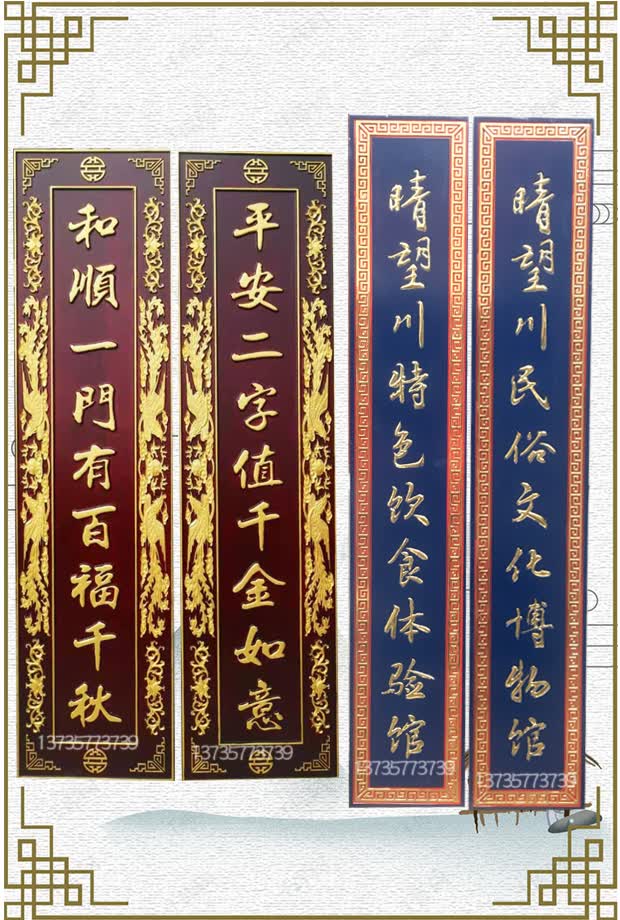 和順一門有百福千秋
平安二字值千金如意
晴望川特色饮食体验馆
晴望川民俗文化博物馆
13735773739
13735773739
13735773739
13735773739